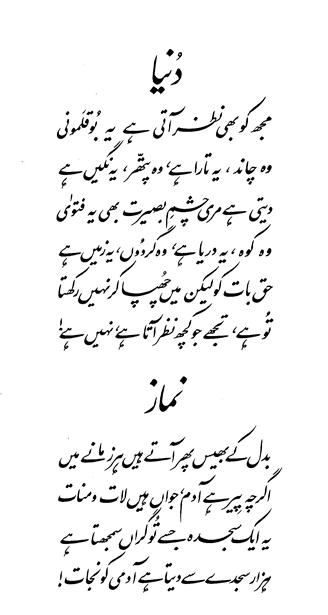 دُنیا
مجھ کو بھی نظر آتی ہے یہ بُوقلمونی
وہ چاند، یہ تارا ہے، وہ پتھّر، یہ نگیں ہے
دیتی ہے مری چشمِ بصیرت بھی یہ فتویٰ
وہ کوہ، یہ دریا ہے، وہ گردُوں، یہ زمیں ہے
حق بات کو لیکن میں چھُپا کر نہیں رکھتا
تُو ہے، تجھے جو کچھ نظر آتا ہے، نہیں ہے!
نماز
بدل کے بھیس پھر آتے ہیں ہر زمانے میں
اگرچہ پیر ہے آدم، جواں ہیں لات و منات
یہ ایک سجدہ جسے تُو گراں سمجھتا ہے
ہزار سجدے سے دیتا ہے آدمی کو نجات!